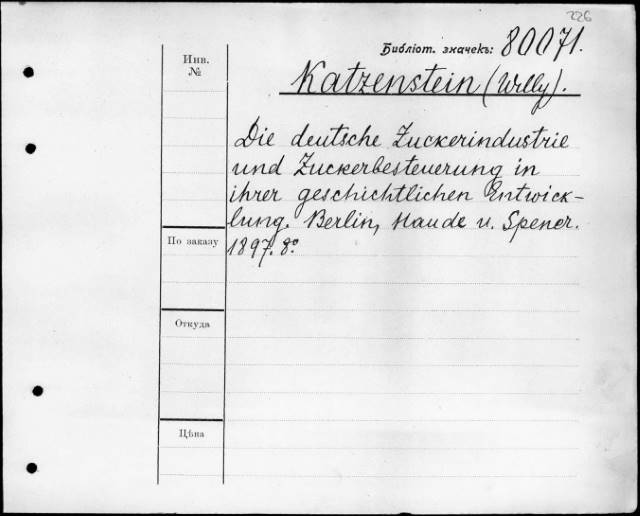 226
Библіот. значекъ: 80071.
Инв.
№
Katzenstein (Willy).
Die deutsche Zuckerindustrie
und Zuckerbesteuerung in
ihrer geschichtlichen Entwick-
lung. Berlin, Haude u. Spener.
По заказу
1897. 8º
Откуда
Цѣна